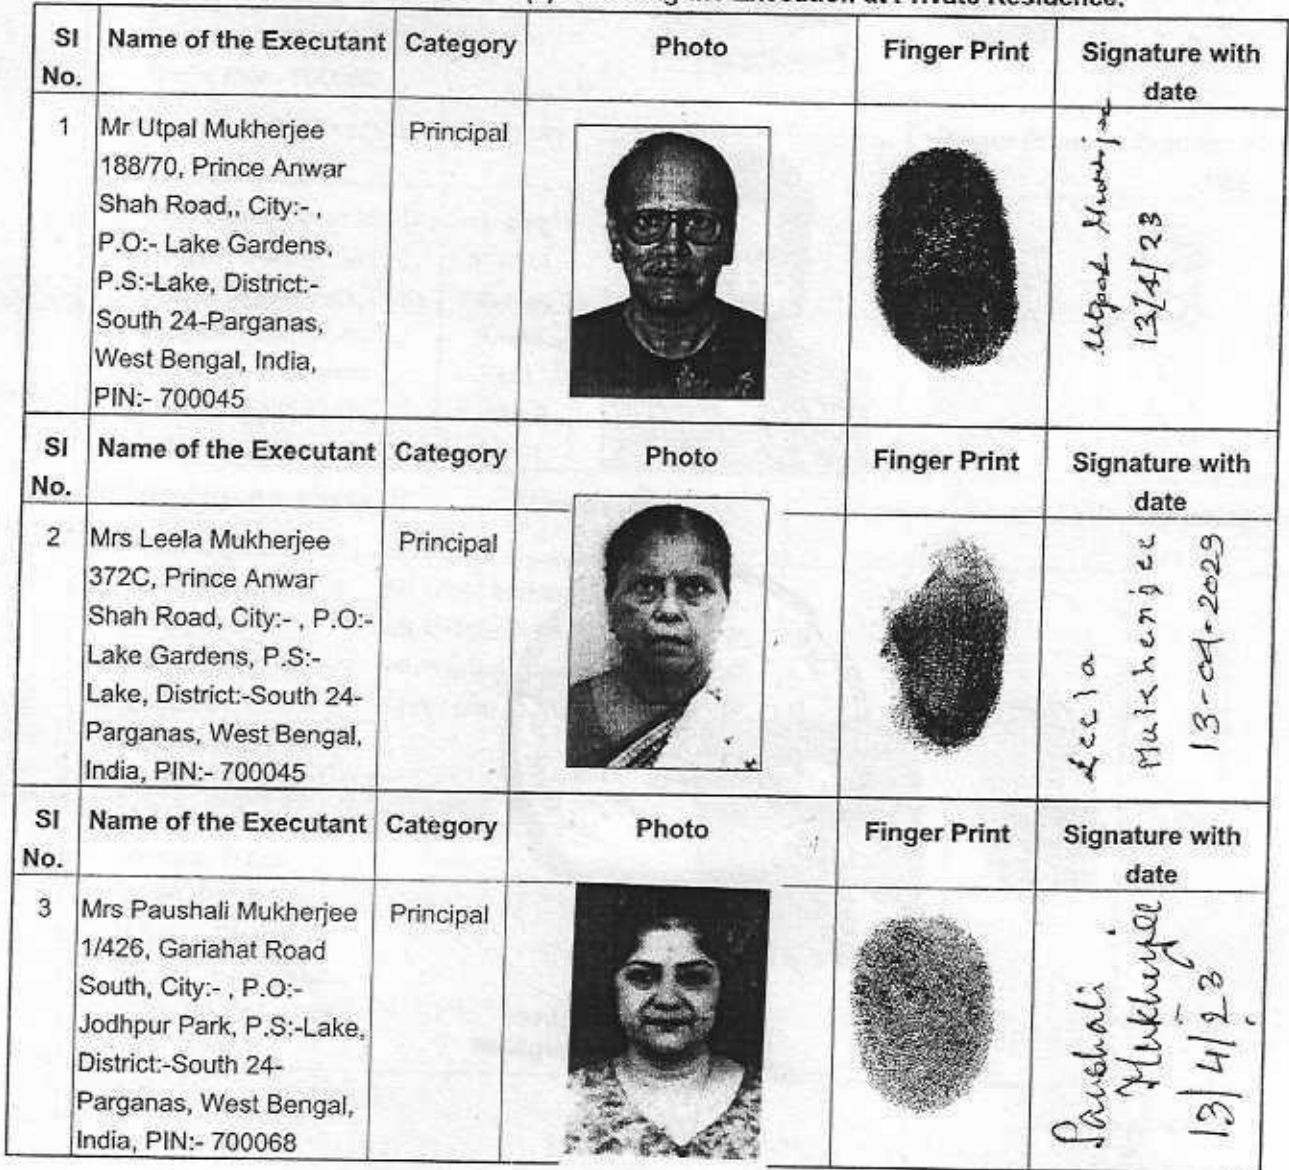 Execution at Private Residence.
Sl No. Name of the Executant Category Photo Finger Print Signature with date
1 Mr Utpal Mukherjee Principal
188/70, Prince Anwar
Shah Road,, City:- ,
P.O:- Lake Gardens,
P.S:-Lake, District:-
South 24-Parganas,
West Bengal, India,
PIN:- 700045
Utpal Mukherjee
13/4/23
Sl No. Name of the Executant Category Photo Finger Print Signature with date
2 Mrs Leela Mukherjee Principal
372C, Prince Anwar
Shah Road, City:- , P.O:-
Lake Gardens, P.S:-
Lake, District:-South 24-
Parganas, West Bengal,
India, PIN:- 700045
Leela
Mukherjee
13-04-2023
Sl No. Name of the Executant Category Photo Finger Print Signature with date
3 Mrs Paushali Mukherjee Principal
1/426, Gariahat Road
South, City:- , P.O:-
Jodhpur Park, P.S:-Lake,
District:-South 24-
Parganas, West Bengal,
India, PIN:- 700068
Paushali
Mukherjee
13/4/23